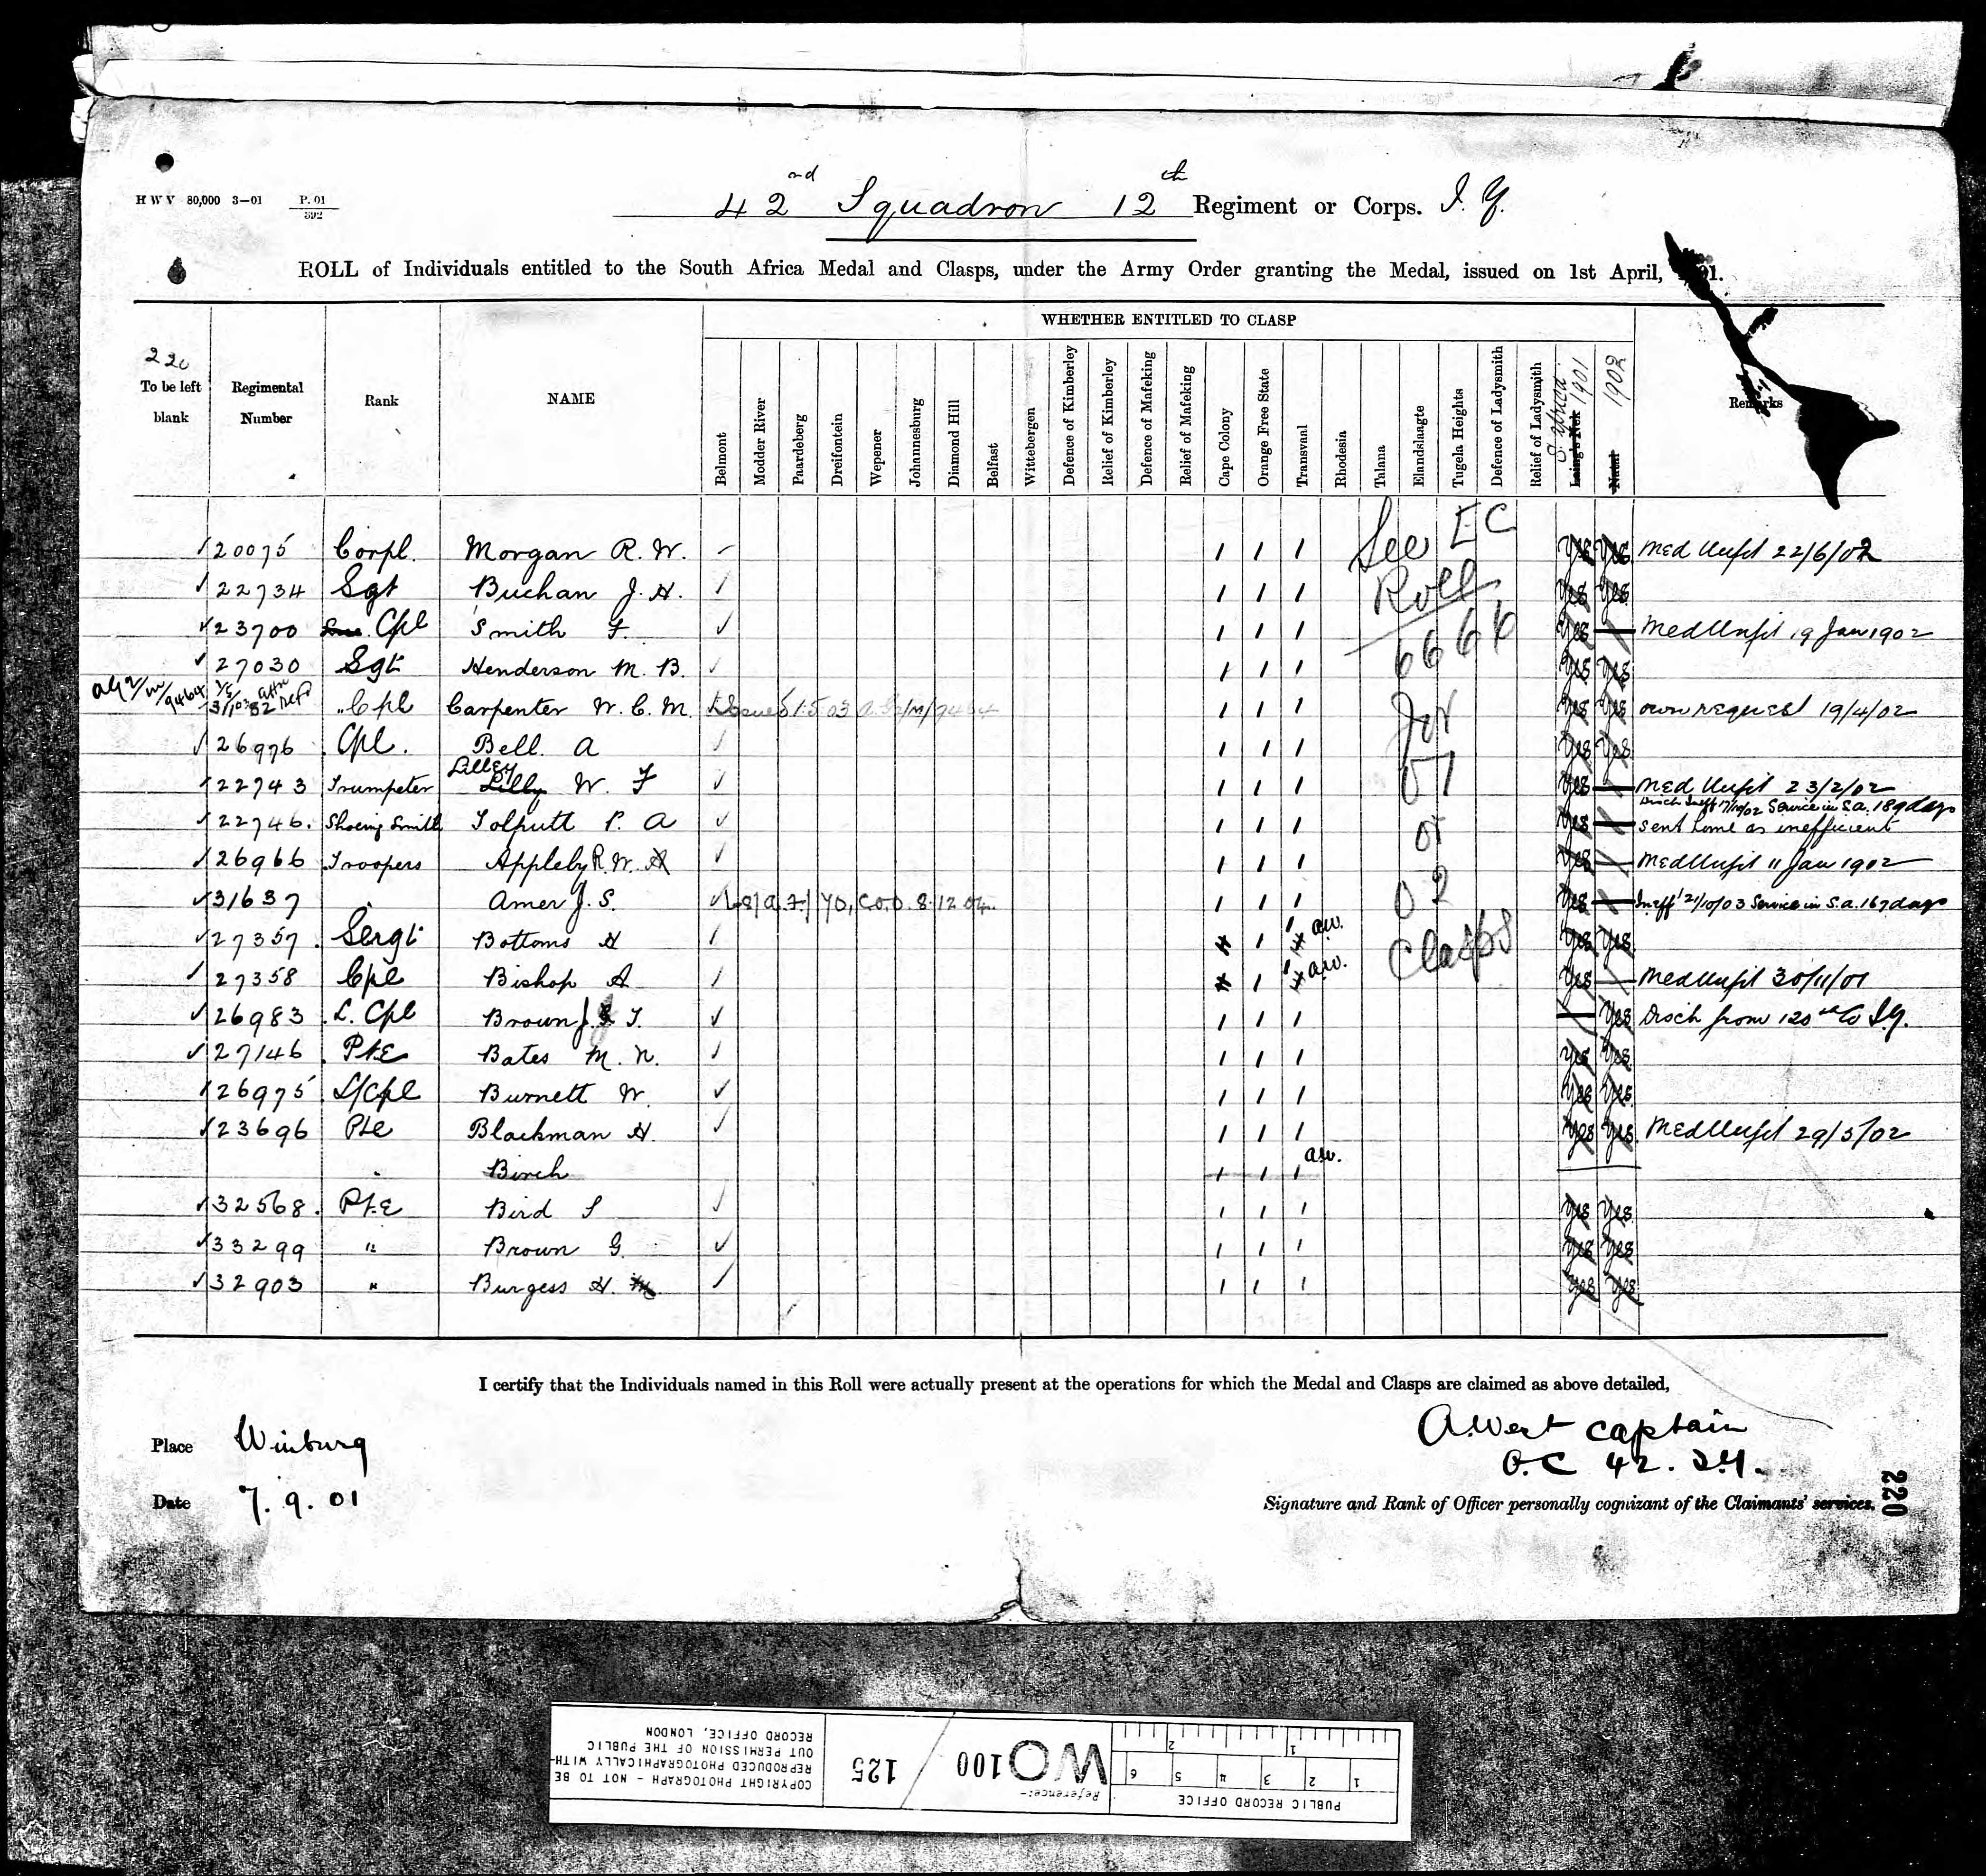 H W V 80,000 3—01 P. 01 / 392
42nd Squadron 12th Regiment or Corps. I. Y.
ROLL of Individuals entitled to the South Africa Medal and Clasps, under the Army Order granting the Medal, issued on 1st April,
WHETHER ENTITLED TO CLASP
220
To be left blank
Regimental Number
Rank
NAME
Belmont
Modder River
Paardeberg
Dreifontein
Wepener
Johannesburg
Diamond Hill
Belfast
Wittebergen
Defence of Kimberley
Relief of Kimberley
Defence of Mafeking
Relief of Mafeking
Cape Colony
Orange Free State
Transvaal
Rhodesia
Talana
Elandslaagte
Tugela Heights
Defence of Ladysmith
Relief of Ladysmith
Laing's Nek S. Africa 1901
Natal 1902
Remarks
See EC Roll 6666 for 01 or 02 Clasps
✓ 20075 Corpl. Morgan R. W. ✓ 1 1 1 Yes Yes Med Unfit 22/6/02
✓ 22734 Sgt Buchan J. H. ✓ 1 1 1 Yes Yes
✓ 23700 Cpl Smith F. ✓ 1 1 1 Yes — Med Unfit 19 Jan 1902
✓ 27030 Sgt Henderson M. B. ✓ 1 1 1 Yes Yes
Cpl Carpenter W. C. M. Issued 1.5.03 A.G.2/M/9464 1 1 1 Yes Yes own request 19/4/02
✓ 26976 Cpl. Bell A ✓ 1 1 1 Yes Yes
✓ 22743 Trumpeter Lilly Lilley W. F ✓ 1 1 1 Yes — Med Unfit 23/2/02
Disch Ineff 7/10/02 Service in S.A. 189 days
✓ 22746. Shoeing Smith Tolputt P. A ✓ 1 1 1 Yes — sent home as inefficient
✓ 26966 Troopers Appleby R. W. A ✓ 1 1 1 Yes — Med Unfit 11 Jan 1902
✓ 31637 Amer J. S. ✓ 8.12.04. 1 1 1 Yes — Ineff 21/10/03 Service in S.A. 167 days
✓ 27357. Sergt Bottoms H ✓ 1 1 aw. Yes Yes
✓ 27358 Cpl Bishop A ✓ 1 1 aw. Yes — Med Unfit 30/11/01
✓ 26983 L. Cpl Brown J. T. ✓ 1 1 1 — Yes Disch from 120th Co I.Y.
✓ 27146. Pte Bates M. N. ✓ 1 1 1 Yes Yes
✓ 26975 L/Cpl Burnett W. ✓ 1 1 1 Yes Yes
✓ 23696 Pte Blackman H. ✓ 1 1 1 Yes Yes Med Unfit 29/5/02
" Birch 1 1 1 aw.
✓ 32568. Pte Bird S ✓ 1 1 1 Yes Yes
✓ 33299 " Brown G. ✓ 1 1 1 Yes Yes
✓ 32903 " Burgess H. M. ✓ 1 1 1 Yes Yes
I certify that the Individuals named in this Roll were actually present at the operations for which the Medal and Clasps are claimed as above detailed,
Place Winburg
A. West captain
O.C 42. I.Y.
Date 7. 9. 01
Signature and Rank of Officer personally cognizant of the Claimants' services.
220
PUBLIC RECORD OFFICE
1 2 3 4 5 6
1 2
Reference:-
WO 100 / 125
COPYRIGHT PHOTOGRAPH - NOT TO BE
REPRODUCED PHOTOGRAPHICALLY WITH-
OUT PERMISSION OF THE PUBLIC
RECORD OFFICE, LONDON